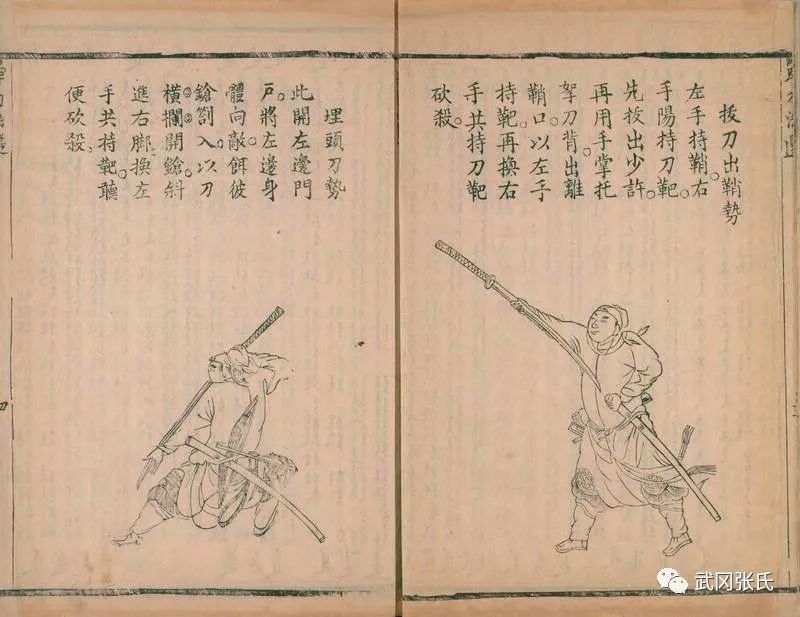 拔刀出鞘勢
左手持鞘。右
手陽持刀靶。
先拔出少許。
再用手掌托
拏刀背出離
鞘口。以左手
持靶。再換右
手共持刀靶
砍殺。
埋頭刀勢
此開左邊門
戶。將左邊身
體向敵。餌彼
鎗劄入。以刀
橫攔開鎗。斜
進右脚。換左
手共持靶。聽
便砍殺。
武冈张氏